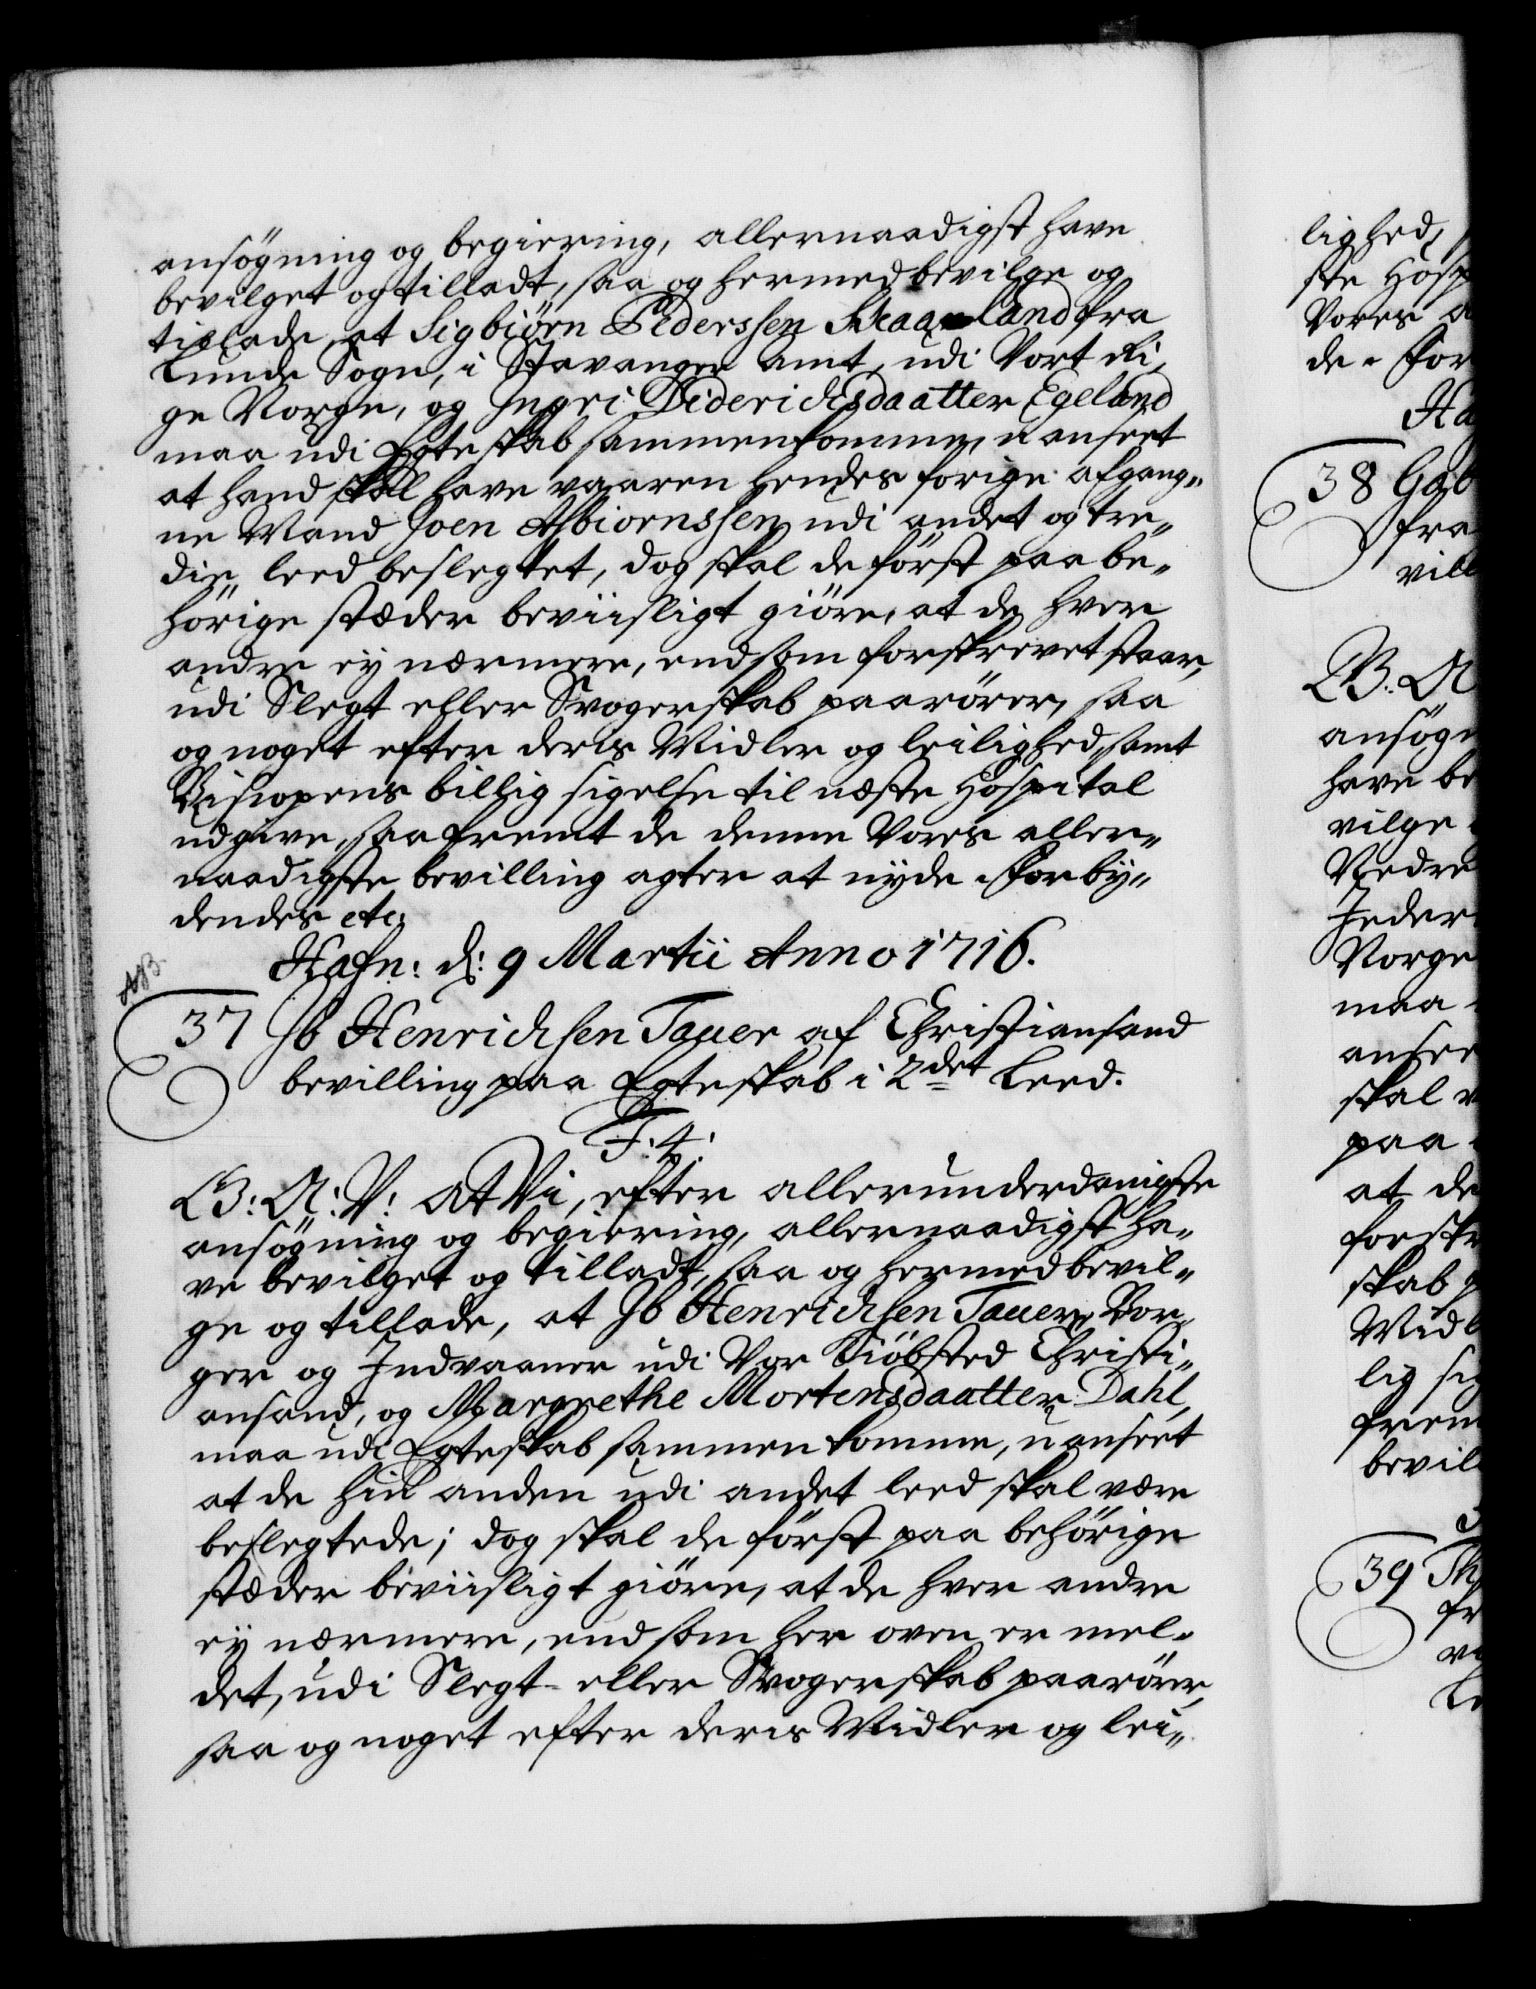 ansögning og begiering, allernaadigst have
bevilget og tilladt, saa og hermed bevilge og
tillade, at Sigbiörn Pederssen Skaanland fra
Lunde Sogn, i Stavanger Amt, udi Vort Ri,
ge Norge, og Ingri Diderichsdaatter Egeland
maa udi Egteskab sammenkomme, uanseet
at hand skal have vaaren hendes forige afgang„
ne Mand Joen Asbiornssen udi andet og tre„
die leed beslegtet, dog skal de först paa be„
hörige stæder beviisligt giöre, at de hver
andre ey nærmere, end som forskrevet staar,
udi Slegt eller Svogerskab paarörer, saa
og noget efter deris Midler og leilighed, samt
Bispens billig sigelse til næste Hospital
udgive, saa fremt de denne Vores aller„
naadigste bevilling agter at nyde. Forby„
dendes etc:
Hafn: d: 9 Martii Anno 1716.
NB.
37 Ib Henrichsen Tauer af Christiansand
bevilling paa Egteskab i 2det Leed.
F: 4:
G: A: V: At Vi, efter allerunderdanigste
ansögning og begiering, allernaadigst ha„
ve bevilget og tilladt, saa og hermed bevil„
ge og tillade, at Ib Henrichsen Tauer, Bor„
ger og Indvaaner udi Vor Kiöbsted Christi„
ansand, og Margrethe Mortensdaatter Dahl,
maa udi Egteskab sammen komme, uanseet
at de hin anden udi andet leed skal være
beslegtede; dog skal de först paa behörige
stæder beviisligt giöre, at de hver andre
ey nærmere, end som her oven er mel„
det, udi Slegt- eller Svogerskab paarörer,
saa og noget efter deris Midler og lei„
lighed,
ste Hosp
Vores a
de. For
Ha
38 Gab
fra
vill
G: A
ansögn
have be
vilge
Nedre
Jeder
Norge
maa
ansee
skal v
paa
at de
forskr
skab p
Midl
lig sig
frem
bevil
39 Th
fr
Le